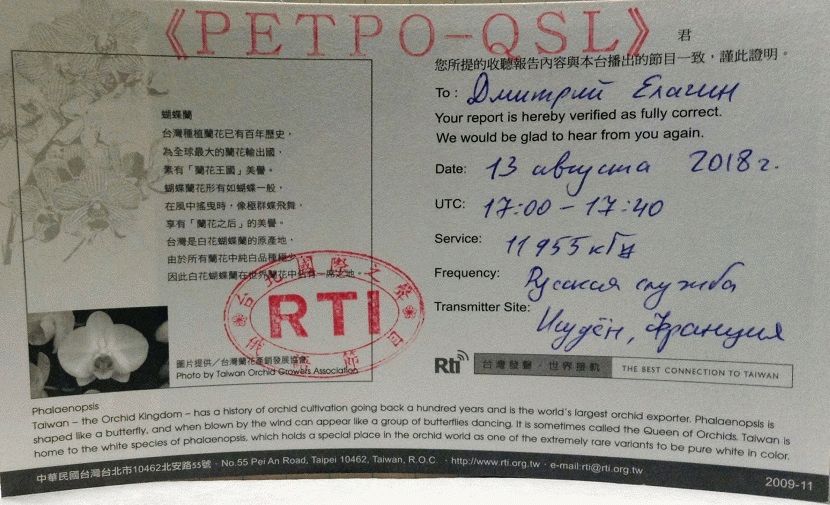 《РЕТРО-QSL》
君
您所提的收聽報告內容與本台播出的節目一致，謹此證明。
To : Дмитрий Елагин
Your report is hereby verified as fully correct.
We would be glad to hear from you again.
Date: 13 августа 2018г.
UTC: 17:00-17:40
Service: 11955 кГц
Frequency: Русская служба
Transmitter Site: Исудён, Франция
蝴蝶蘭
台灣種植蘭花已有百年歷史，
為全球最大的蘭花輸出國，
素有「蘭花王國」美譽。
蝴蝶蘭花形有如蝴蝶一般，
在風中搖曳時，像極群蝶飛舞，
享有「蘭花之后」的美譽。
台灣是白花蝴蝶蘭的原產地，
由於所有蘭花中純白品種極少，
因此白花蝴蝶蘭在世界蘭花中佔有一席之地。
台北國際之聲
RTI
俄 節目
圖片提供／台灣蘭花產銷發展協會
Photo by Taiwan Orchid Growers Association
Rti 台灣發聲·世界接軌 THE BEST CONNECTION TO TAIWAN
Phalaenopsis
Taiwan – the Orchid Kingdom – has a history of orchid cultivation going back a hundred years and is the world's largest orchid exporter. Phalaenopsis is
shaped like a butterfly, and when blown by the wind can appear like a group of butterflies dancing. It is sometimes called the Queen of Orchids. Taiwan is
home to the white species of phalaenopsis, which holds a special place in the orchid world as one of the extremely rare variants to be pure white in color.
中華民國台灣台北市10462北安路55號 · No.55 Pei An Road, Taipei 10462, Taiwan, R.O.C. · http://www.rti.org.tw · e-mail:rti@rti.org.tw
2009-11